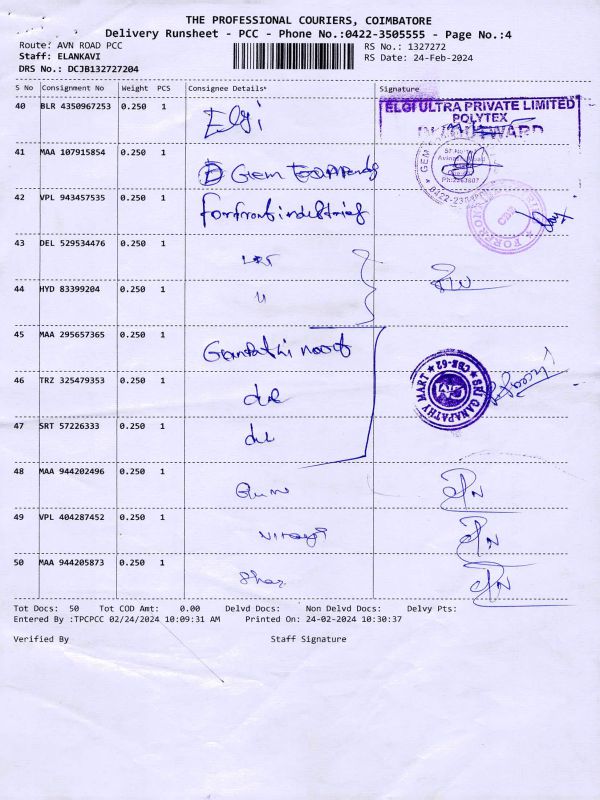 THE PROFESSIONAL COURIERS, COIMBATORE
Delivery Runsheet - PCC - Phone No.:0422-3505555 - Page No.:4
Route: AVN ROAD PCC RS No.: 1327272
Staff: ELANKAVI RS Date: 24-Feb-2024
DRS No.: DCJB132727204
S No Consignment No Weight PCS Consignee Details* Signature
40 BLR 4350967253 0.250 1 Elgi
ELGI ULTRA PRIVATE LIMITED
POLYTEX
41 MAA 107915854 0.250 1 Gem
42 VPL 943457535 0.250 1 forfront industries
43 DEL 529534476 0.250 1
44 HYD 83399204 0.250 1 "
45 MAA 295657365 0.250 1 Ganpathi
SRI GANAPATHY MART CBE-62
46 TRZ 325479353 0.250 1
47 SRT 57226333 0.250 1
48 MAA 944202496 0.250 1
49 VPL 404287452 0.250 1
50 MAA 944205873 0.250 1
Tot Docs: 50 Tot COD Amt: 0.00 Delvd Docs: Non Delvd Docs: Delvy Pts:
Entered By :TPCPCC 02/24/2024 10:09:31 AM Printed On: 24-02-2024 10:30:37
Verified By Staff Signature